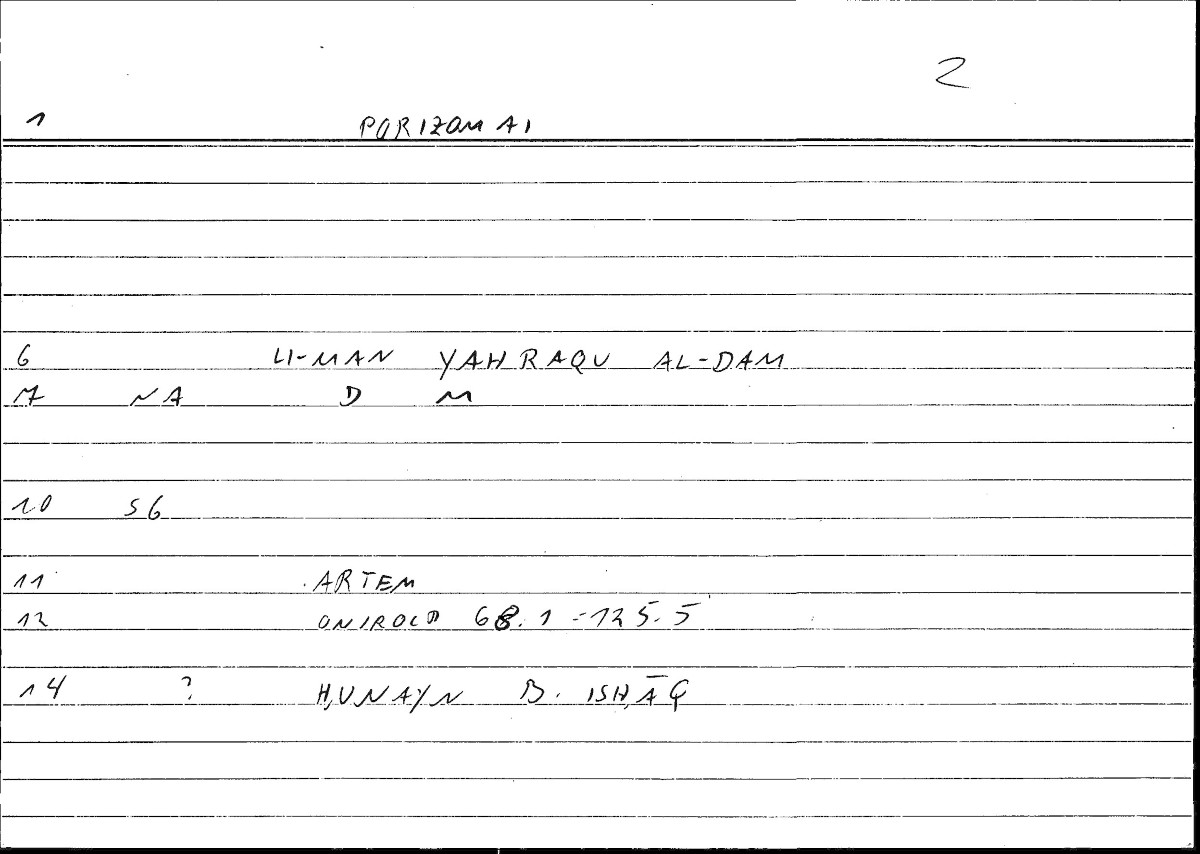 2
1 PORIZOMAI
6 LI-MAN YAHRAQU AL-DAM
7 NA D M
10 56
11 ARTEM
12 ONIROCR 68.1-125.5
14 ? ḤUNAYN B. ISḤĀQ